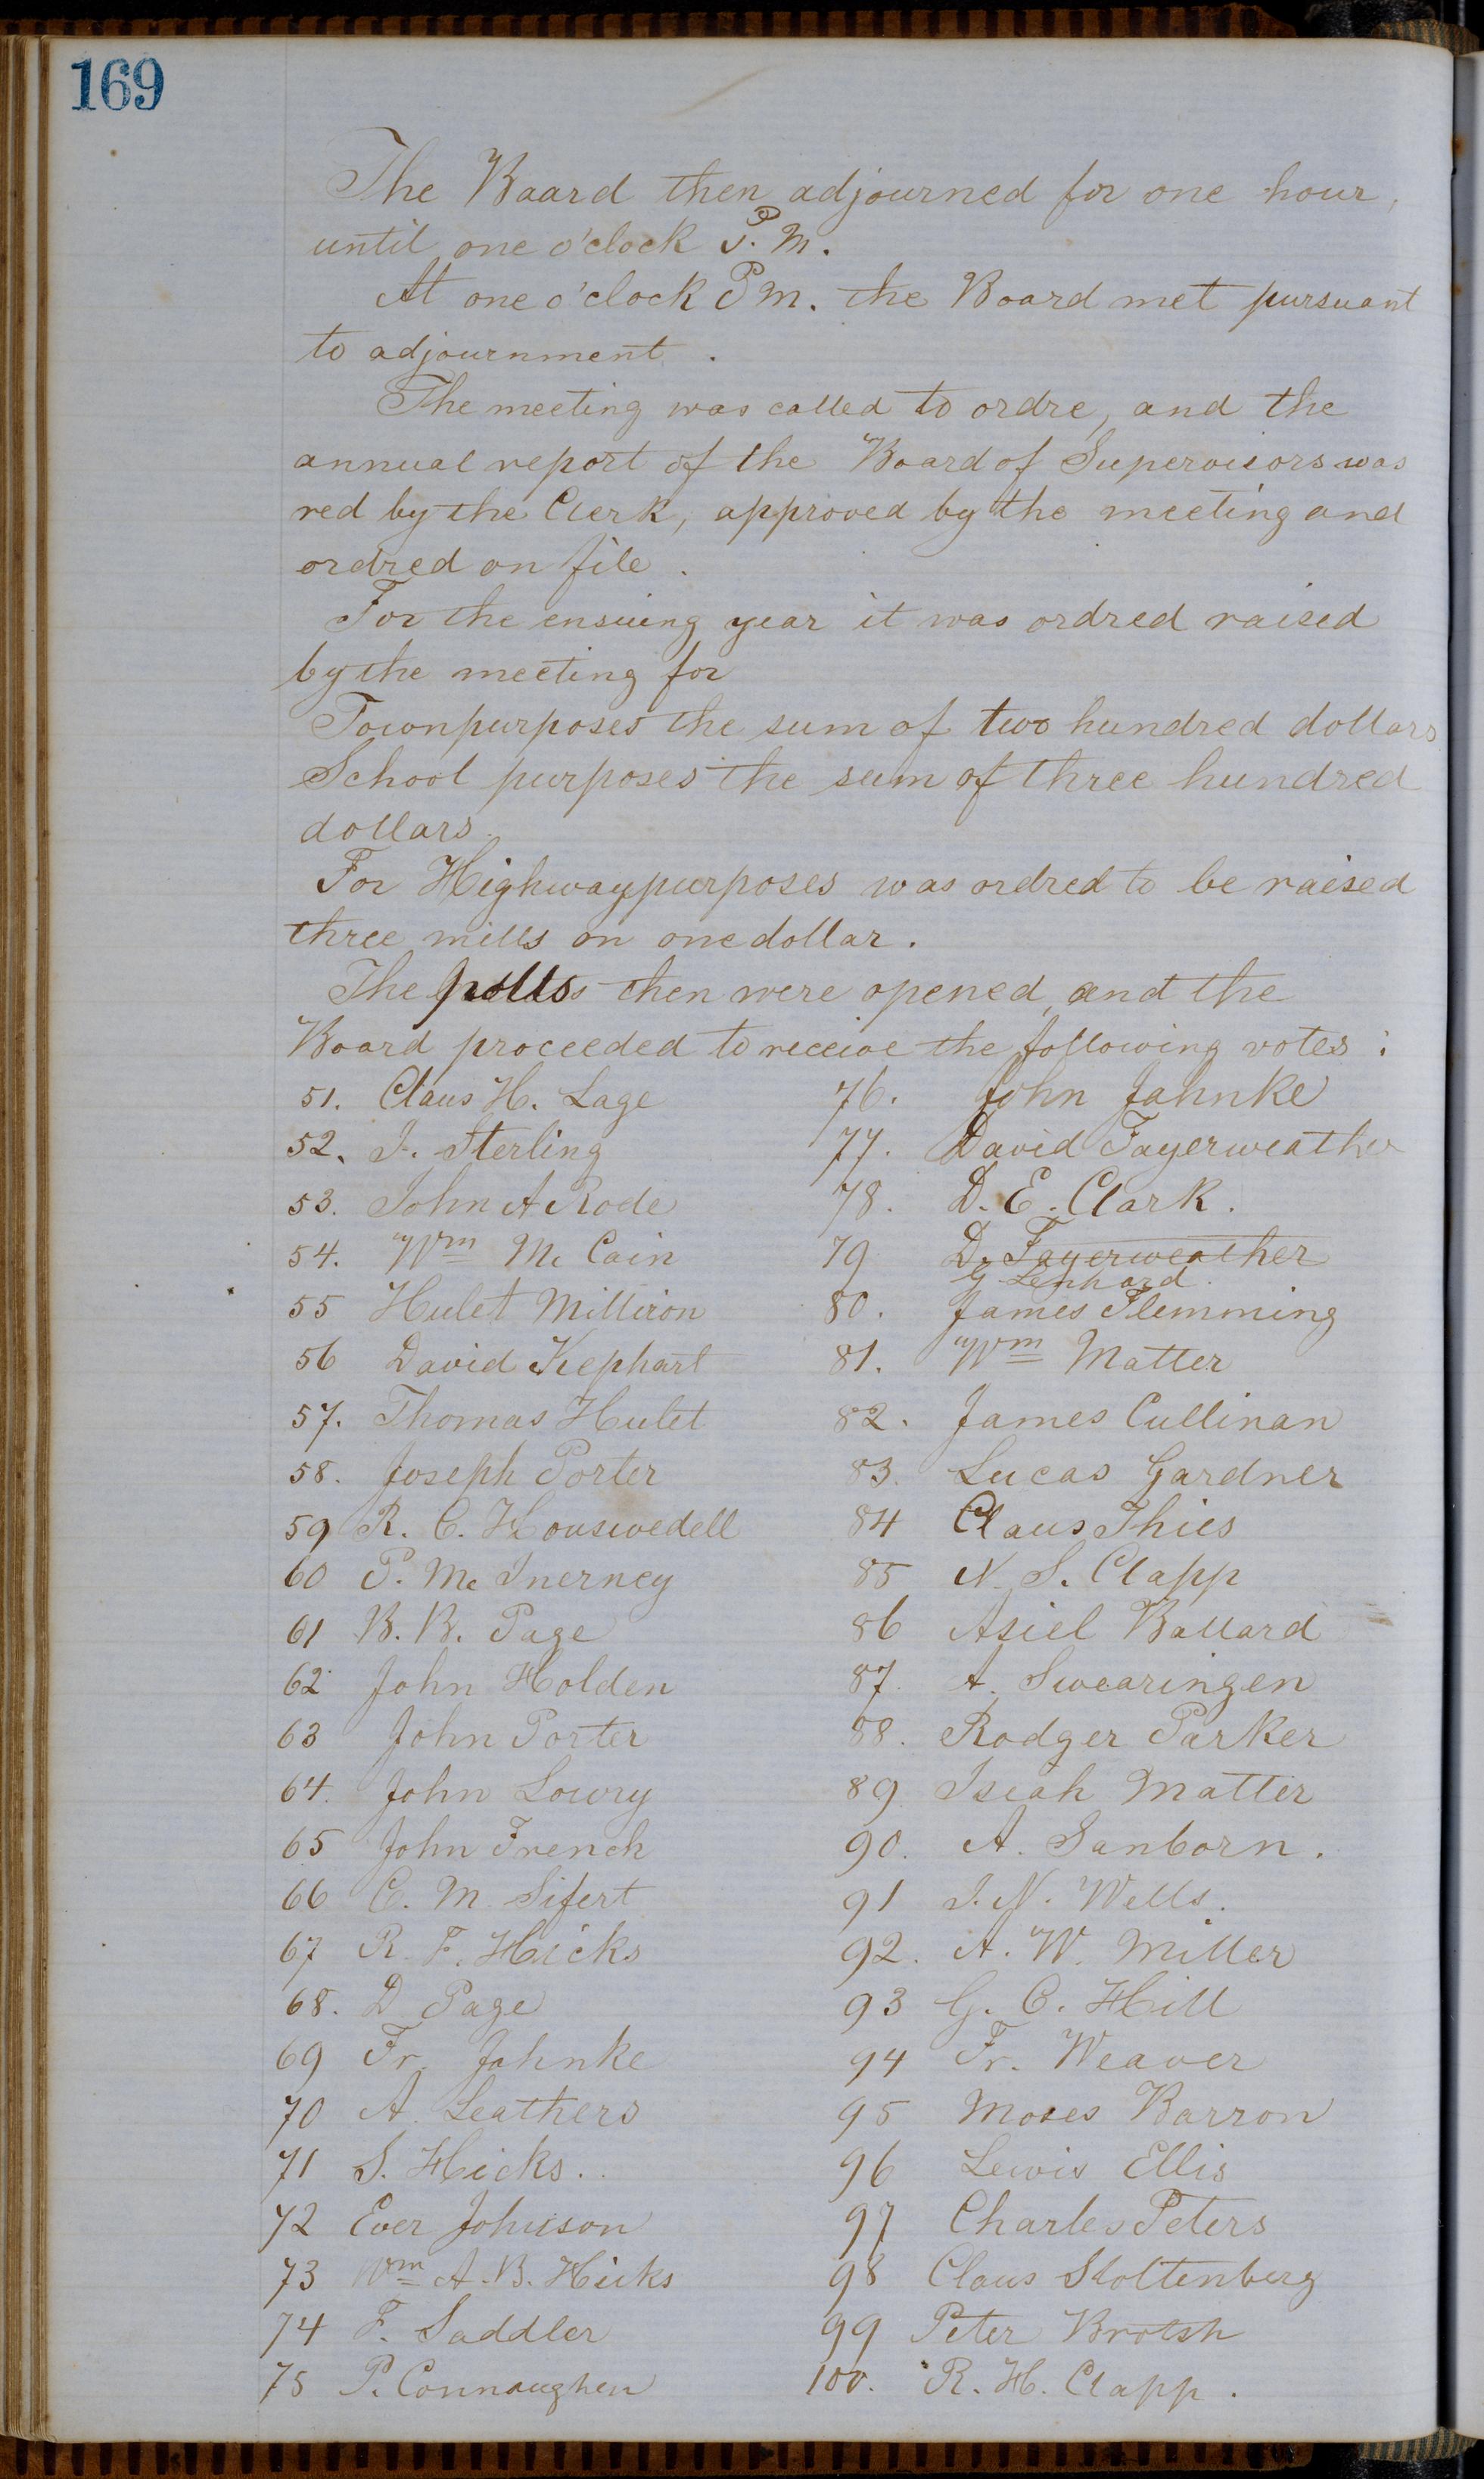 169
The Board then adjourned for one hour,
until one o'clock P. M.
At one o'clock P M. the Board met pursuant
to adjournment.
The meeting was called to ordre, and the
annual report of the Board of Supervisors was
red by the Clerk, approved by the meeting and
ordred on file.
For the ensuing year it was ordred raised
by the meeting for
Town purposes the sum of two hundred dollars
School purposes the sum of three hundred
dollars.
For Highway purposes was ordred to be raised
three mills on one dollar.
The polls then were opened, and the
Board proceeded to receive the following votes:
51. Claus H. Lage
52. J. Sterling
53. John A Rode
54. Wm Mc Cain
55 Hulet Milliron
56 David Kephart
57. Thomas Hulet
58. Joseph Porter
59 R. C. Houswedell
60 P. Mc Inerney
61 B. B. Page
62 John Holden
63 John Porter
64. John Lowry
65 John French
66 C. M. Sifert
67 R. F. Hicks
68. D Page
69 Fr. Jahnke
70 A. Leathers
71 S. Hicks.
72 Ever Johnson
73 Wm A. B. Hicks
74 F. Saddler
75 P. Connaughen
76. John Jahnke
77. David Fayerweather
78. D. E. Clark.
79 D. Fayerweather
G Lenhard.
80. James Flemming
81. Wm Matter
82. James Cullinan
83. Lucas Gardner
84 Claus Thies
85 N. S. Clapp
86 Asiel Ballard
87. A. Swearingen
88. Rodger Parker
89 Isiah Matter
90. A. Sanborn.
91 J. N. Wells.
92. A. W. Miller
93 G. C. Hill
94 Fr. Weaver
95 Moses Barron
96 Lewis Ellis
97 Charles Peters
98 Claus Stoltenberg
99 Peter Brotsh
100. R. H. Clapp.